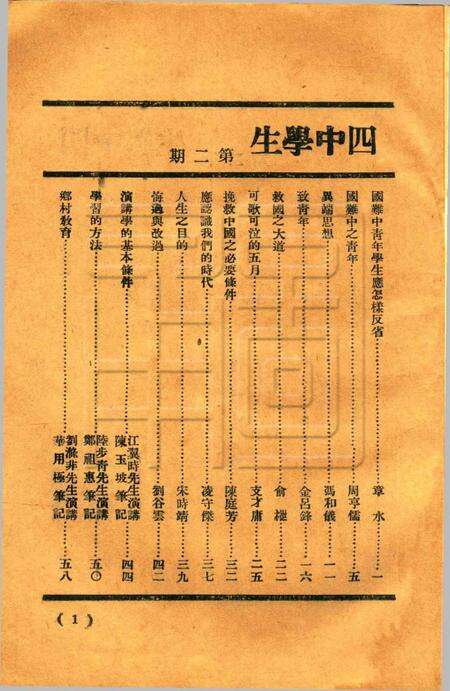 四中學生 第二期
國難中青年學生應怎樣反省 章水 一
國難中之青年 周亭儒 五
異端思想 馮和儀 一一
致青年 金呂鋒 一六
救國之大道 俞 二二
可歌可泣的五月 支才庸 二五
挽救中國之必要條件 陳庭芳 三二
應認識我們的時代 凌守傑 三七
人生之目的 宋時靖 三九
悔過與改過 劉谷雲 四二
演講學的基本條件 江翼時先生演講 陳玉坡筆記 四四
學習的方法 陸步青先生演講 鄭祖惠筆記 五〇
鄉村教育 劉 非先生演講 華用極筆記 五八
(1)